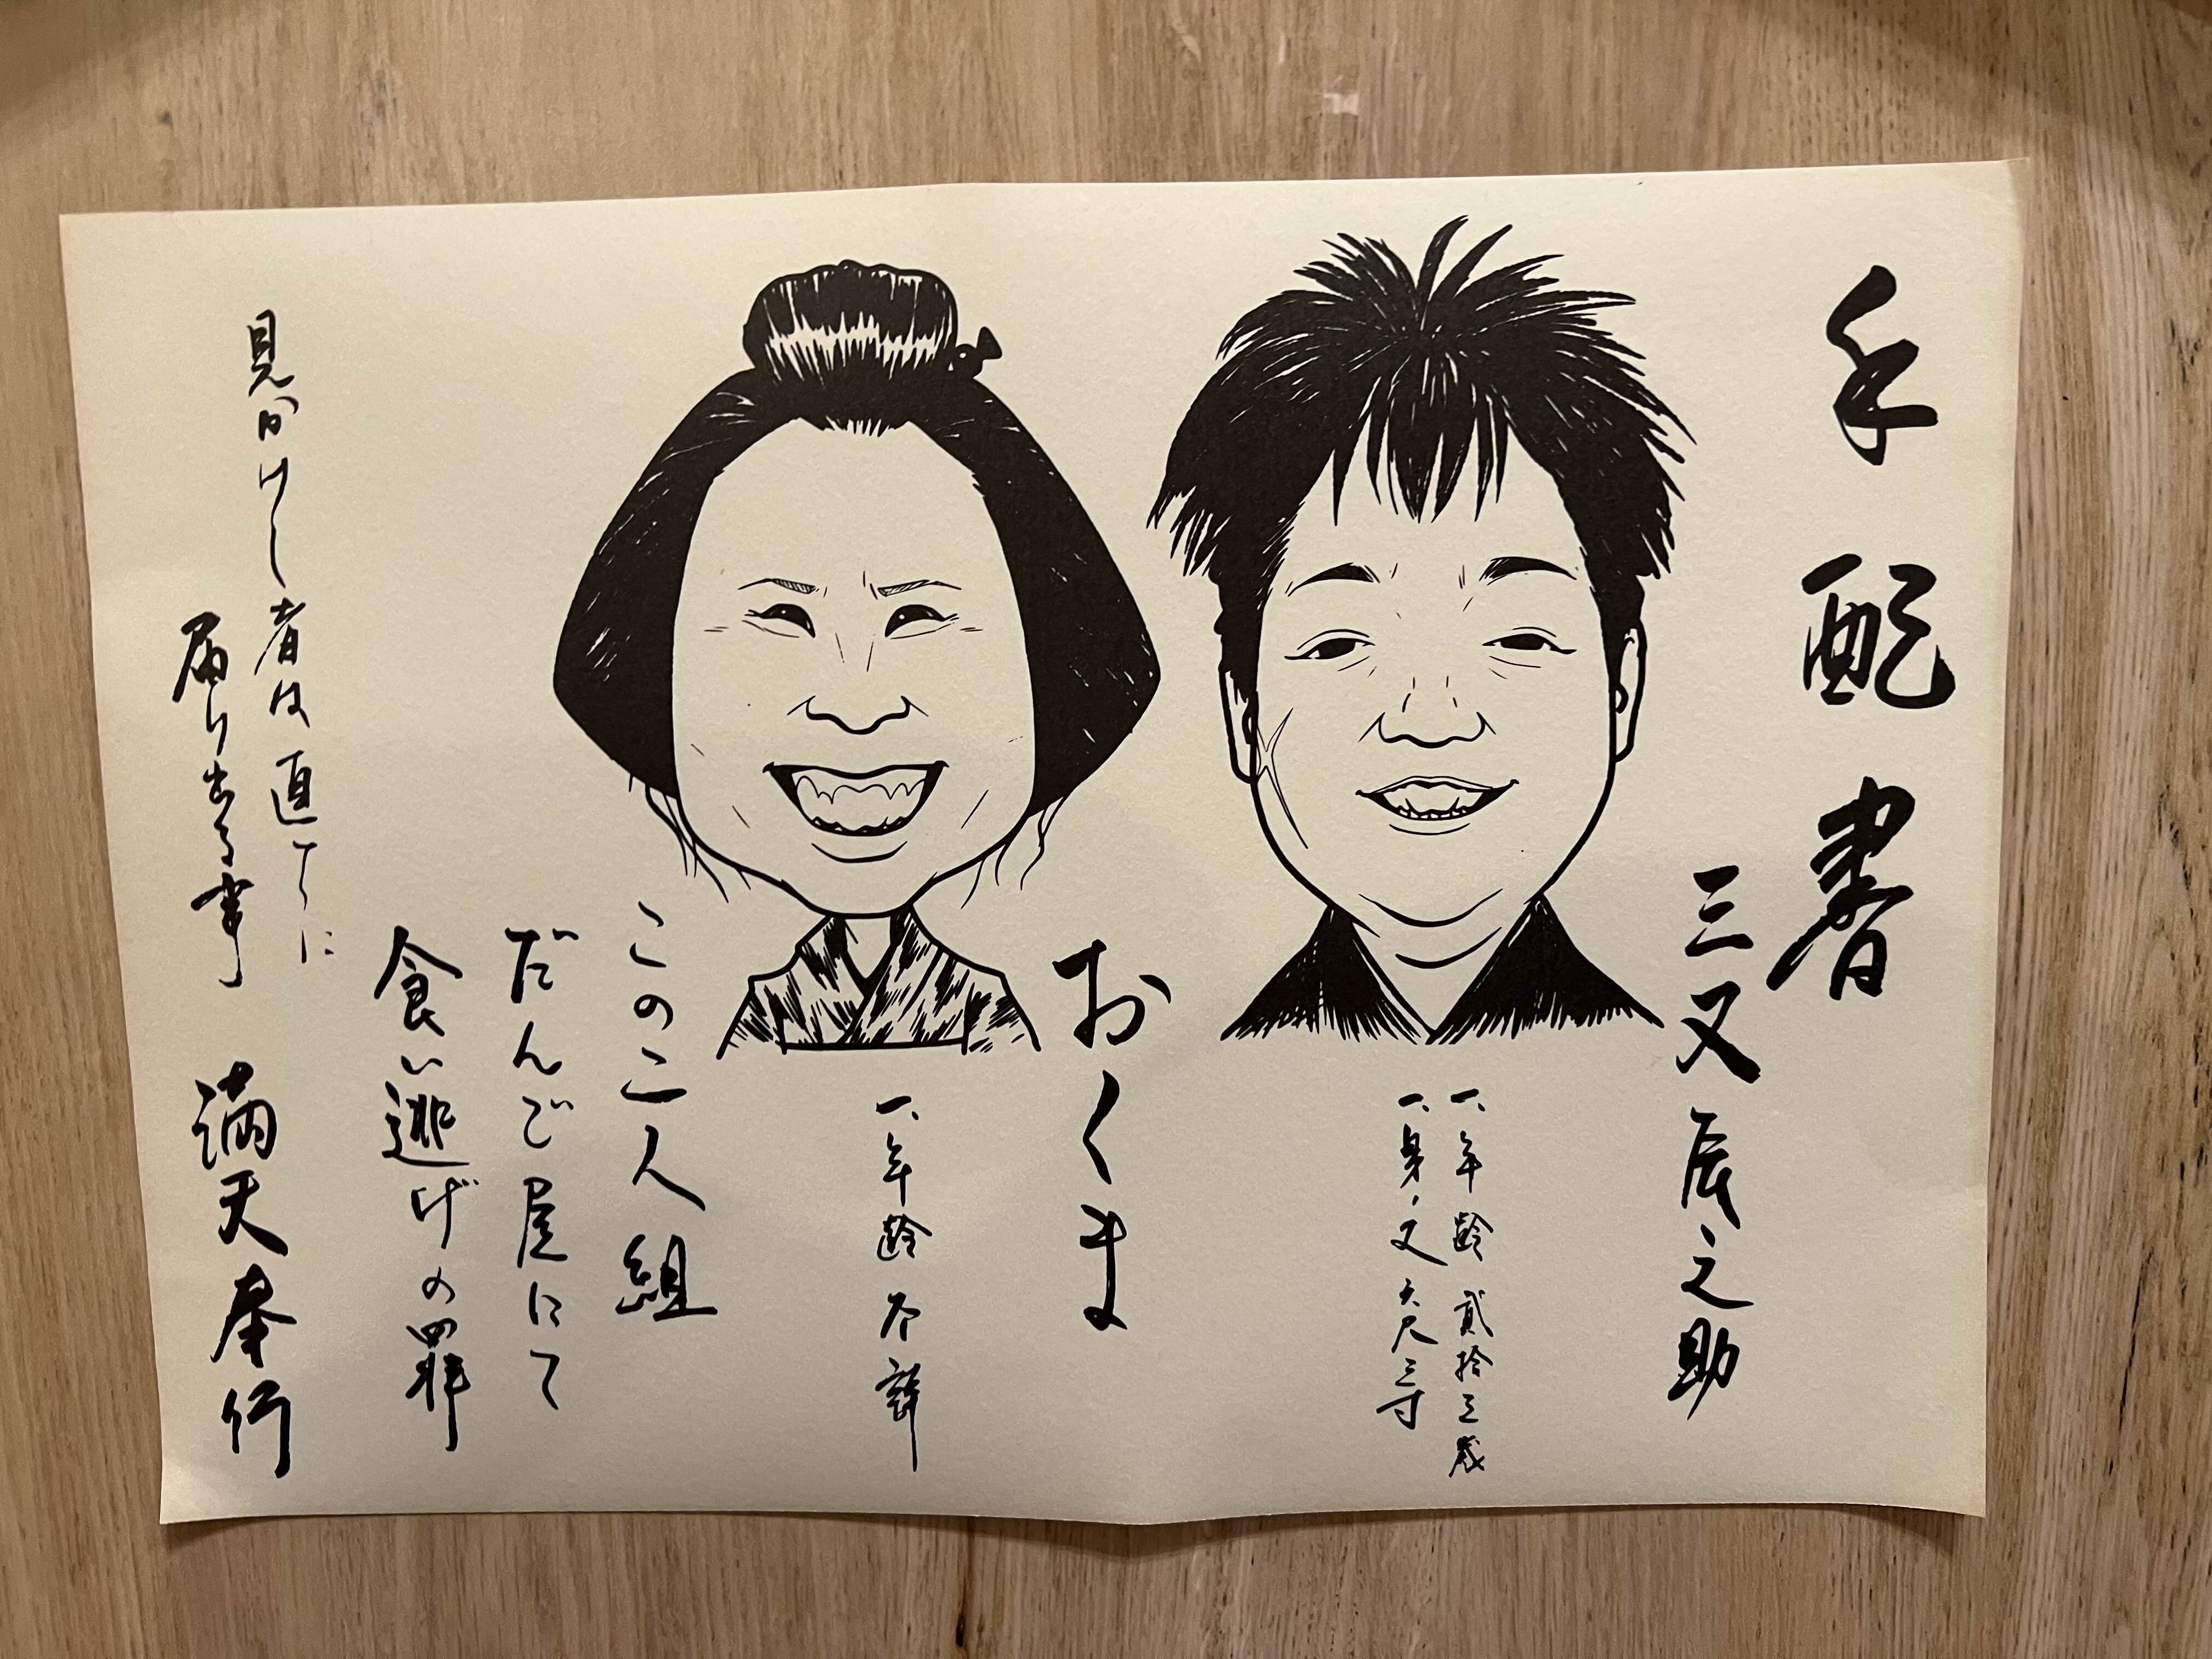 手配書
三又辰之助
一、年齢 貳拾三歳
一、身丈 六尺三寸
おくま
一、年齢 不詳
この二人組
だんご屋にて
食い逃げの罪
見かけし者は直ちに
届け出る事
満天奉行